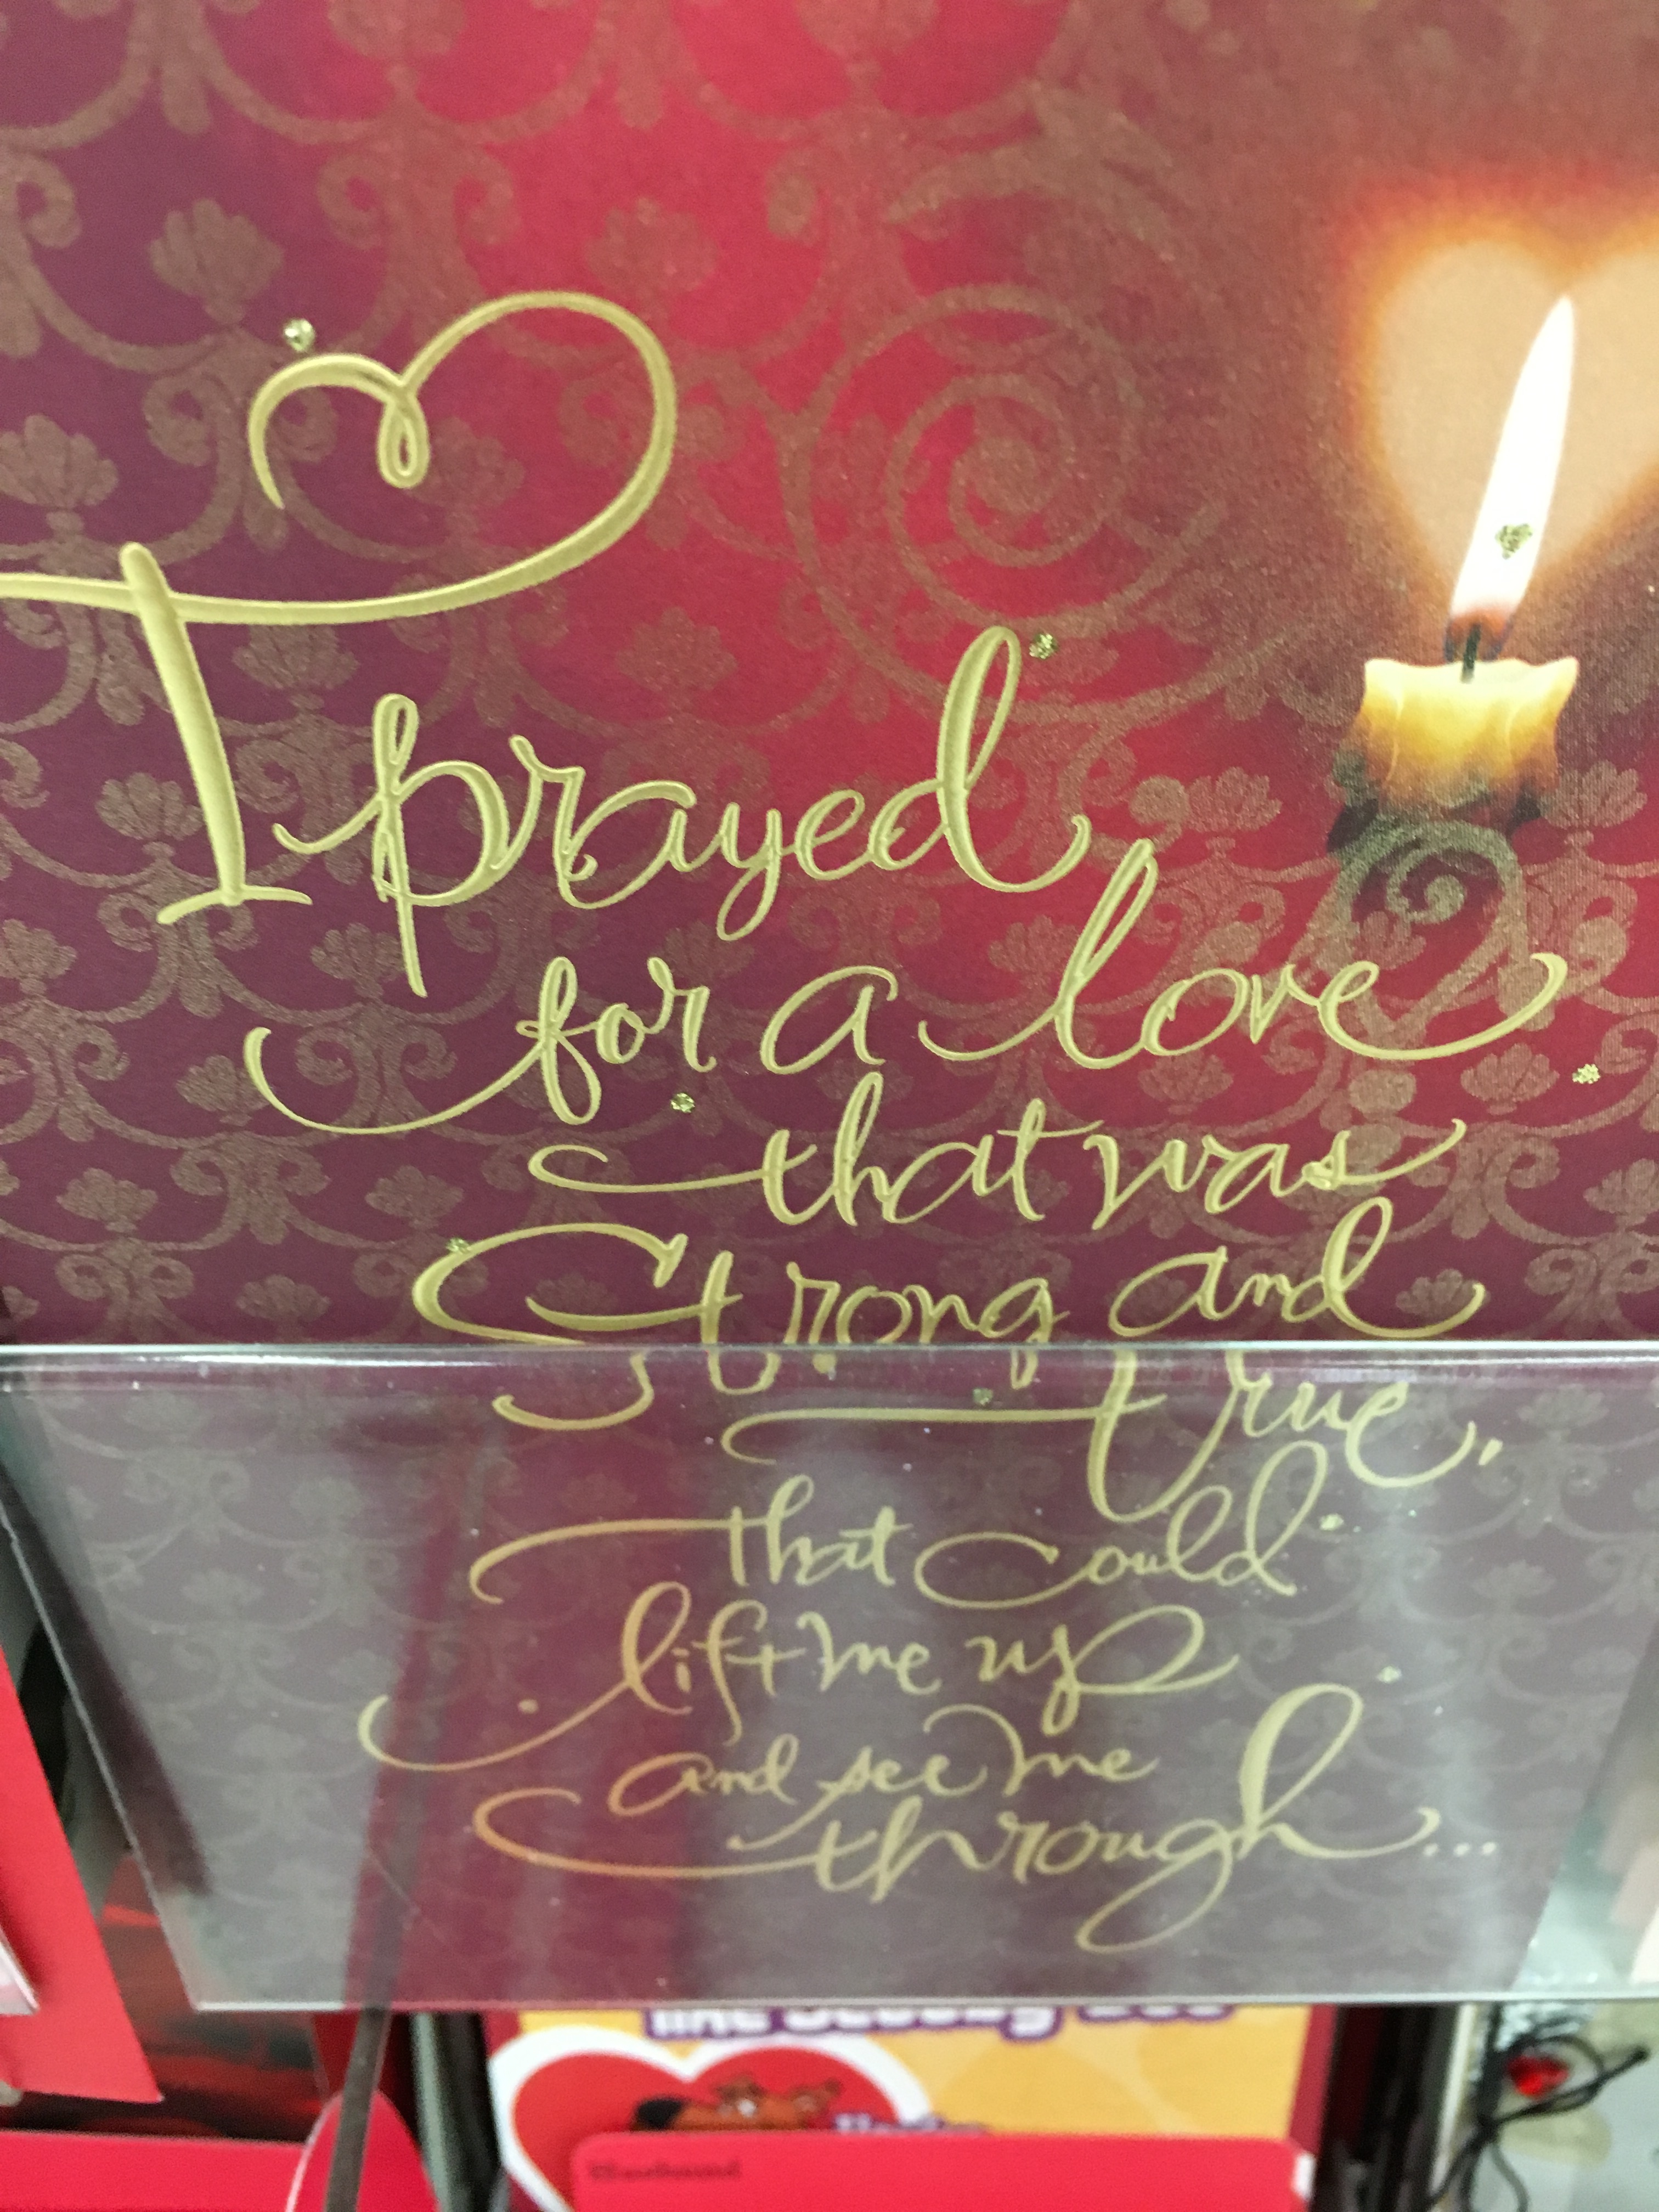 I prayed
for a love
that was
strong and
true,
that could
lift me up
and see me
through...
like Scooby Doo